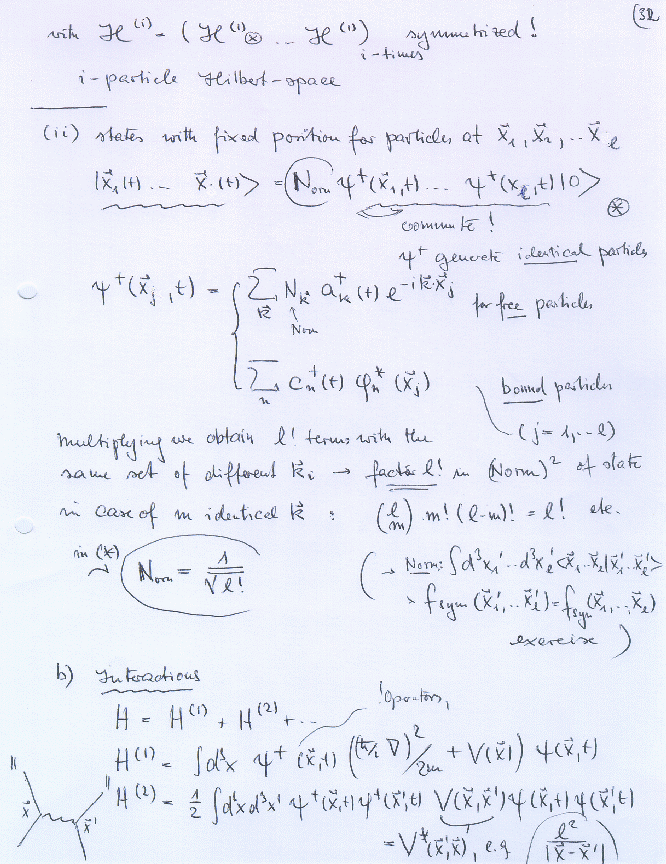 (32
with ℋ^(i) = (ℋ^(1) ⊗ ... ℋ^(1)) symmetrized!
i-times
i-particle Hilbert-space
(ii) states with fixed position for particles at x⃗_1, x⃗_2, .. x⃗_ℓ
|x⃗_1(t) ... x⃗.(t)⟩ = Norm ψ⁺(x⃗_1,t) ... ψ⁺(x_ℓ,t)|0⟩
(*)
commute!
ψ⁺ generate identical particles
ψ⁺(x⃗_j,t) = { Σ_k⃗ N_k⃗ a⁺_k(t) e^{-ik⃗·x⃗_j} for free particles
Norm
Σ_n c_n⁺(t) φ_n*(x⃗_j) bound particles
(j = 1, .. ℓ)
multiplying we obtain ℓ! terms with the
same set of different k⃗_i → factor ℓ! in (Norm)² of state
in case of m identical k⃗ : (ℓ m) · m! (ℓ-m)! = ℓ! etc.
in (*) Norm = 1/√ℓ!
(→ Norm: ∫d³x_1' .. d³x_ℓ' ⟨x⃗_1..x⃗_ℓ|x⃗_1'..x⃗_ℓ'⟩
· f_sym(x⃗_1',..x⃗_ℓ') = f_sym(x⃗_1,..x⃗_ℓ)
exercise )
b) Interactions
H = H^(1) + H^(2) + ...
! Operators,
H^(1) = ∫d³x ψ⁺(x⃗,t) ((ħ/i ∇)²/2m + V(x⃗)) ψ(x⃗,t)
H^(2) = 1/2 ∫d³x d³x' ψ⁺(x⃗,t) ψ⁺(x⃗',t) V(x⃗,x⃗') ψ(x⃗,t) ψ(x⃗',t)
x⃗ x⃗'
= V*(x⃗',x⃗), e.g. e²/|x⃗-x⃗'|